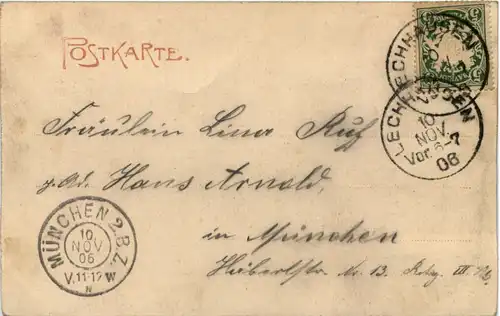 POSTKARTE.
LECHHAUSEN
LECHHAUSEN
10
NOV.
Vor. 6-7
06
5
Fräulein Lina Ruf
p. Ad. Hans Arnold,
in München
Nr. 13.
MÜNCHEN 2.B.Z.
10
NOV
06
V.11-12 W
N